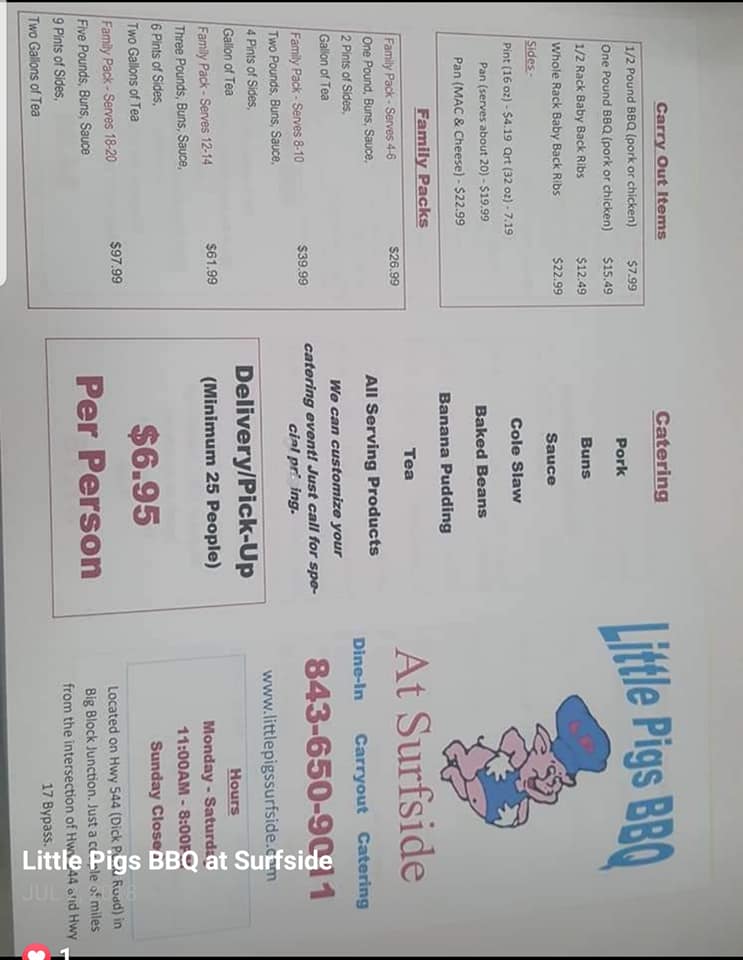 Carry Out Items
1/2 Pound BBQ (pork or chicken) $7.99
One Pound BBQ (pork or chicken) $15.49
1/2 Rack Baby Back Ribs $12.49
Whole Rack Baby Back Ribs $22.99
Sides:-
Pint (16 oz) - $4.19 Qrt (32 oz) - 7.19
Pan (serves about 20) - $19.99
Pan (MAC & Cheese) - $22.99
Family Packs
Family Pack - Serves 4-6 $26.99
One Pound, Buns, Sauce,
2 Pints of Sides,
Gallon of Tea
Family Pack - Serves 8-10 $39.99
Two Pounds, Buns, Sauce,
4 Pints of Sides,
Gallon of Tea
Family Pack - Serves 12-14 $61.99
Three Pounds, Buns, Sauce,
6 Pints of Sides,
Two Gallons of Tea
Family Pack - Serves 18-20 $97.99
Five Pounds, Buns, Sauce
9 Pints of Sides,
Two Gallons of Tea
Catering
Pork
Buns
Sauce
Cole Slaw
Baked Beans
Banana Pudding
Tea
All Serving Products
We can customize your
catering event! Just call for spe-
cial pricing.
Delivery/Pick-Up
(Minimum 25 People)
$6.95
Per Person
Little Pigs BBQ
At Surfside
Dine-In Carryout Catering
843-650-9011
www.littlepigssurfside.com
Hours
Monday - Saturday
11:00AM - 8:00
Sunday Close
Located on Hwy 544 (Dick Road) in
Big Block Junction. Just a couple of miles
from the intersection of Hwy 544 and Hwy
17 Bypass.
Little Pigs BBQ at Surfside
JUL
1